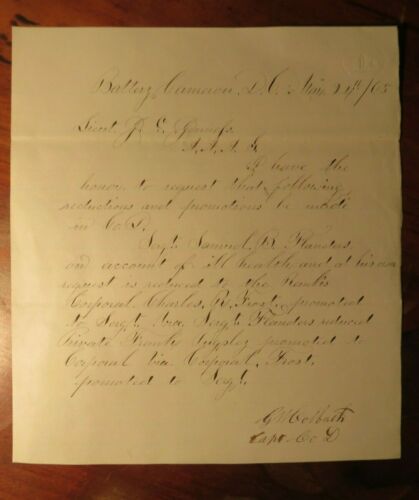 Battery Cameron, D.C. May 24th/65
Lieut. J. E.
A.A.A.G.
I have the
honor to request that following
reductions and promotions be made
in Co D.
Sergt. Samuel B. Flanders
on account of ill health and at his own
request is reduced to the Ranks
Corporal Charles R. Frost, promoted
to Sergt. vice Sergt. Flanders reduced
Private Frank promoted to
Corporal vice Corporal Frost
promoted to Sergt.
Capt. Co D